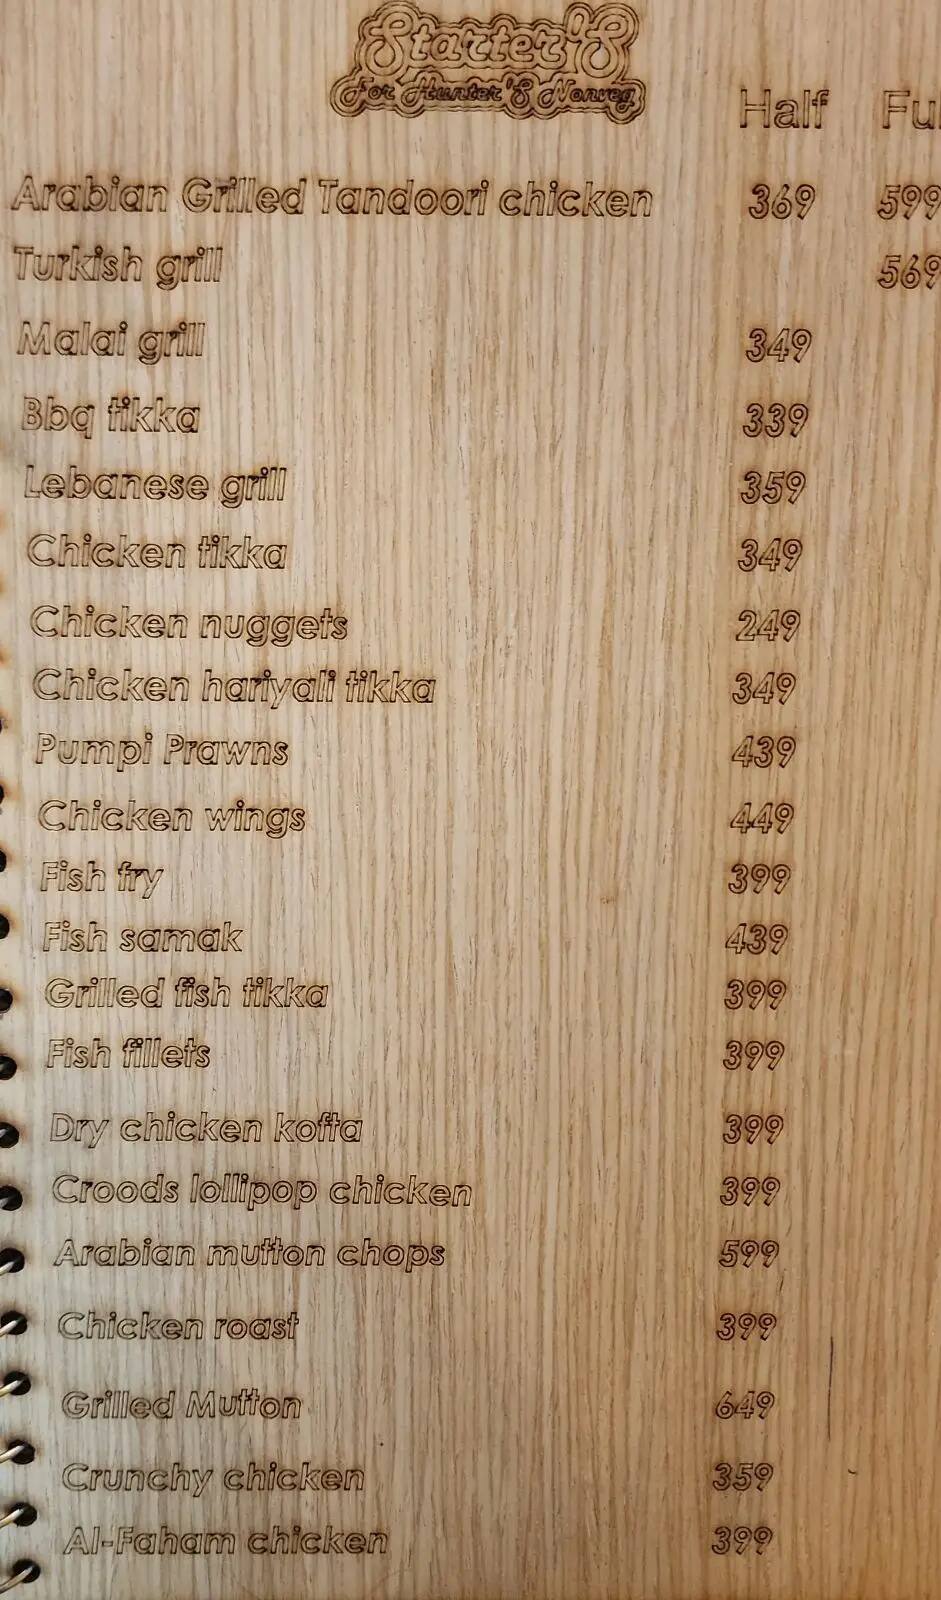 Starter'S
For Hunter'S Nonveg
Half Ful
Arabian Grilled Tandoori chicken 369 599
Turkish grill 569
Malai grill 349
Bbq tikka 339
Lebanese grill 359
Chicken tikka 349
Chicken nuggets 249
Chicken hariyali tikka 349
Pumpi Prawns 439
Chicken wings 449
Fish fry 399
Fish samak 439
Grilled fish tikka 399
Fish fillets 399
Dry chicken kofta 399
Croods lollipop chicken 399
Arabian mutton chops 599
Chicken roast 399
Grilled Mutton 649
Crunchy chicken 359
Al-Faham chicken 399